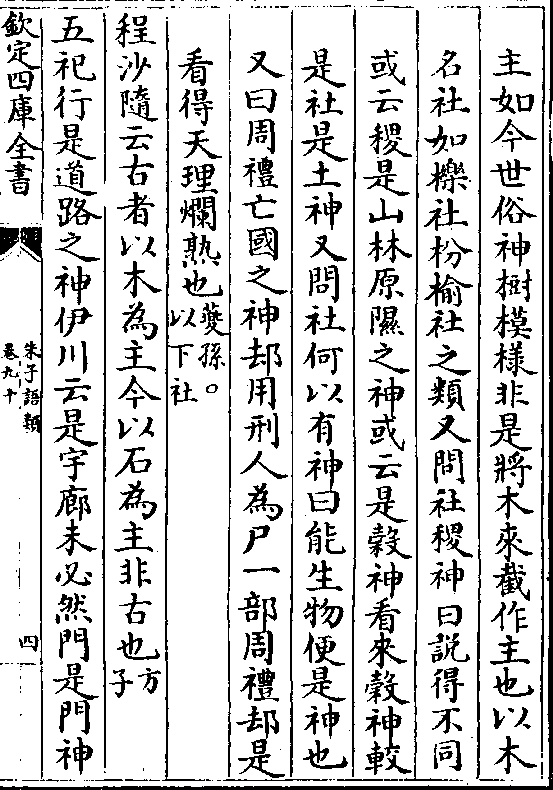 主如今世俗神樹模様非是將木來截作主也以木
名社如櫟社枌榆社之類又問社稷神曰説得不同
或云稷是山林原隰之神或云是穀神看來穀神較
是社是土神又問社何以有神曰能生物便是神也
又曰周禮亡國之神却用刑人為尸一部周禮却是
看得天理爛熟也夔孫○以下社
程沙隨云古者以木為主今以石為主非古也方子
五祀行是道路之神伊川云是宇廊未必然門是門神
欽定四庫全書
朱子語類
卷九十
四